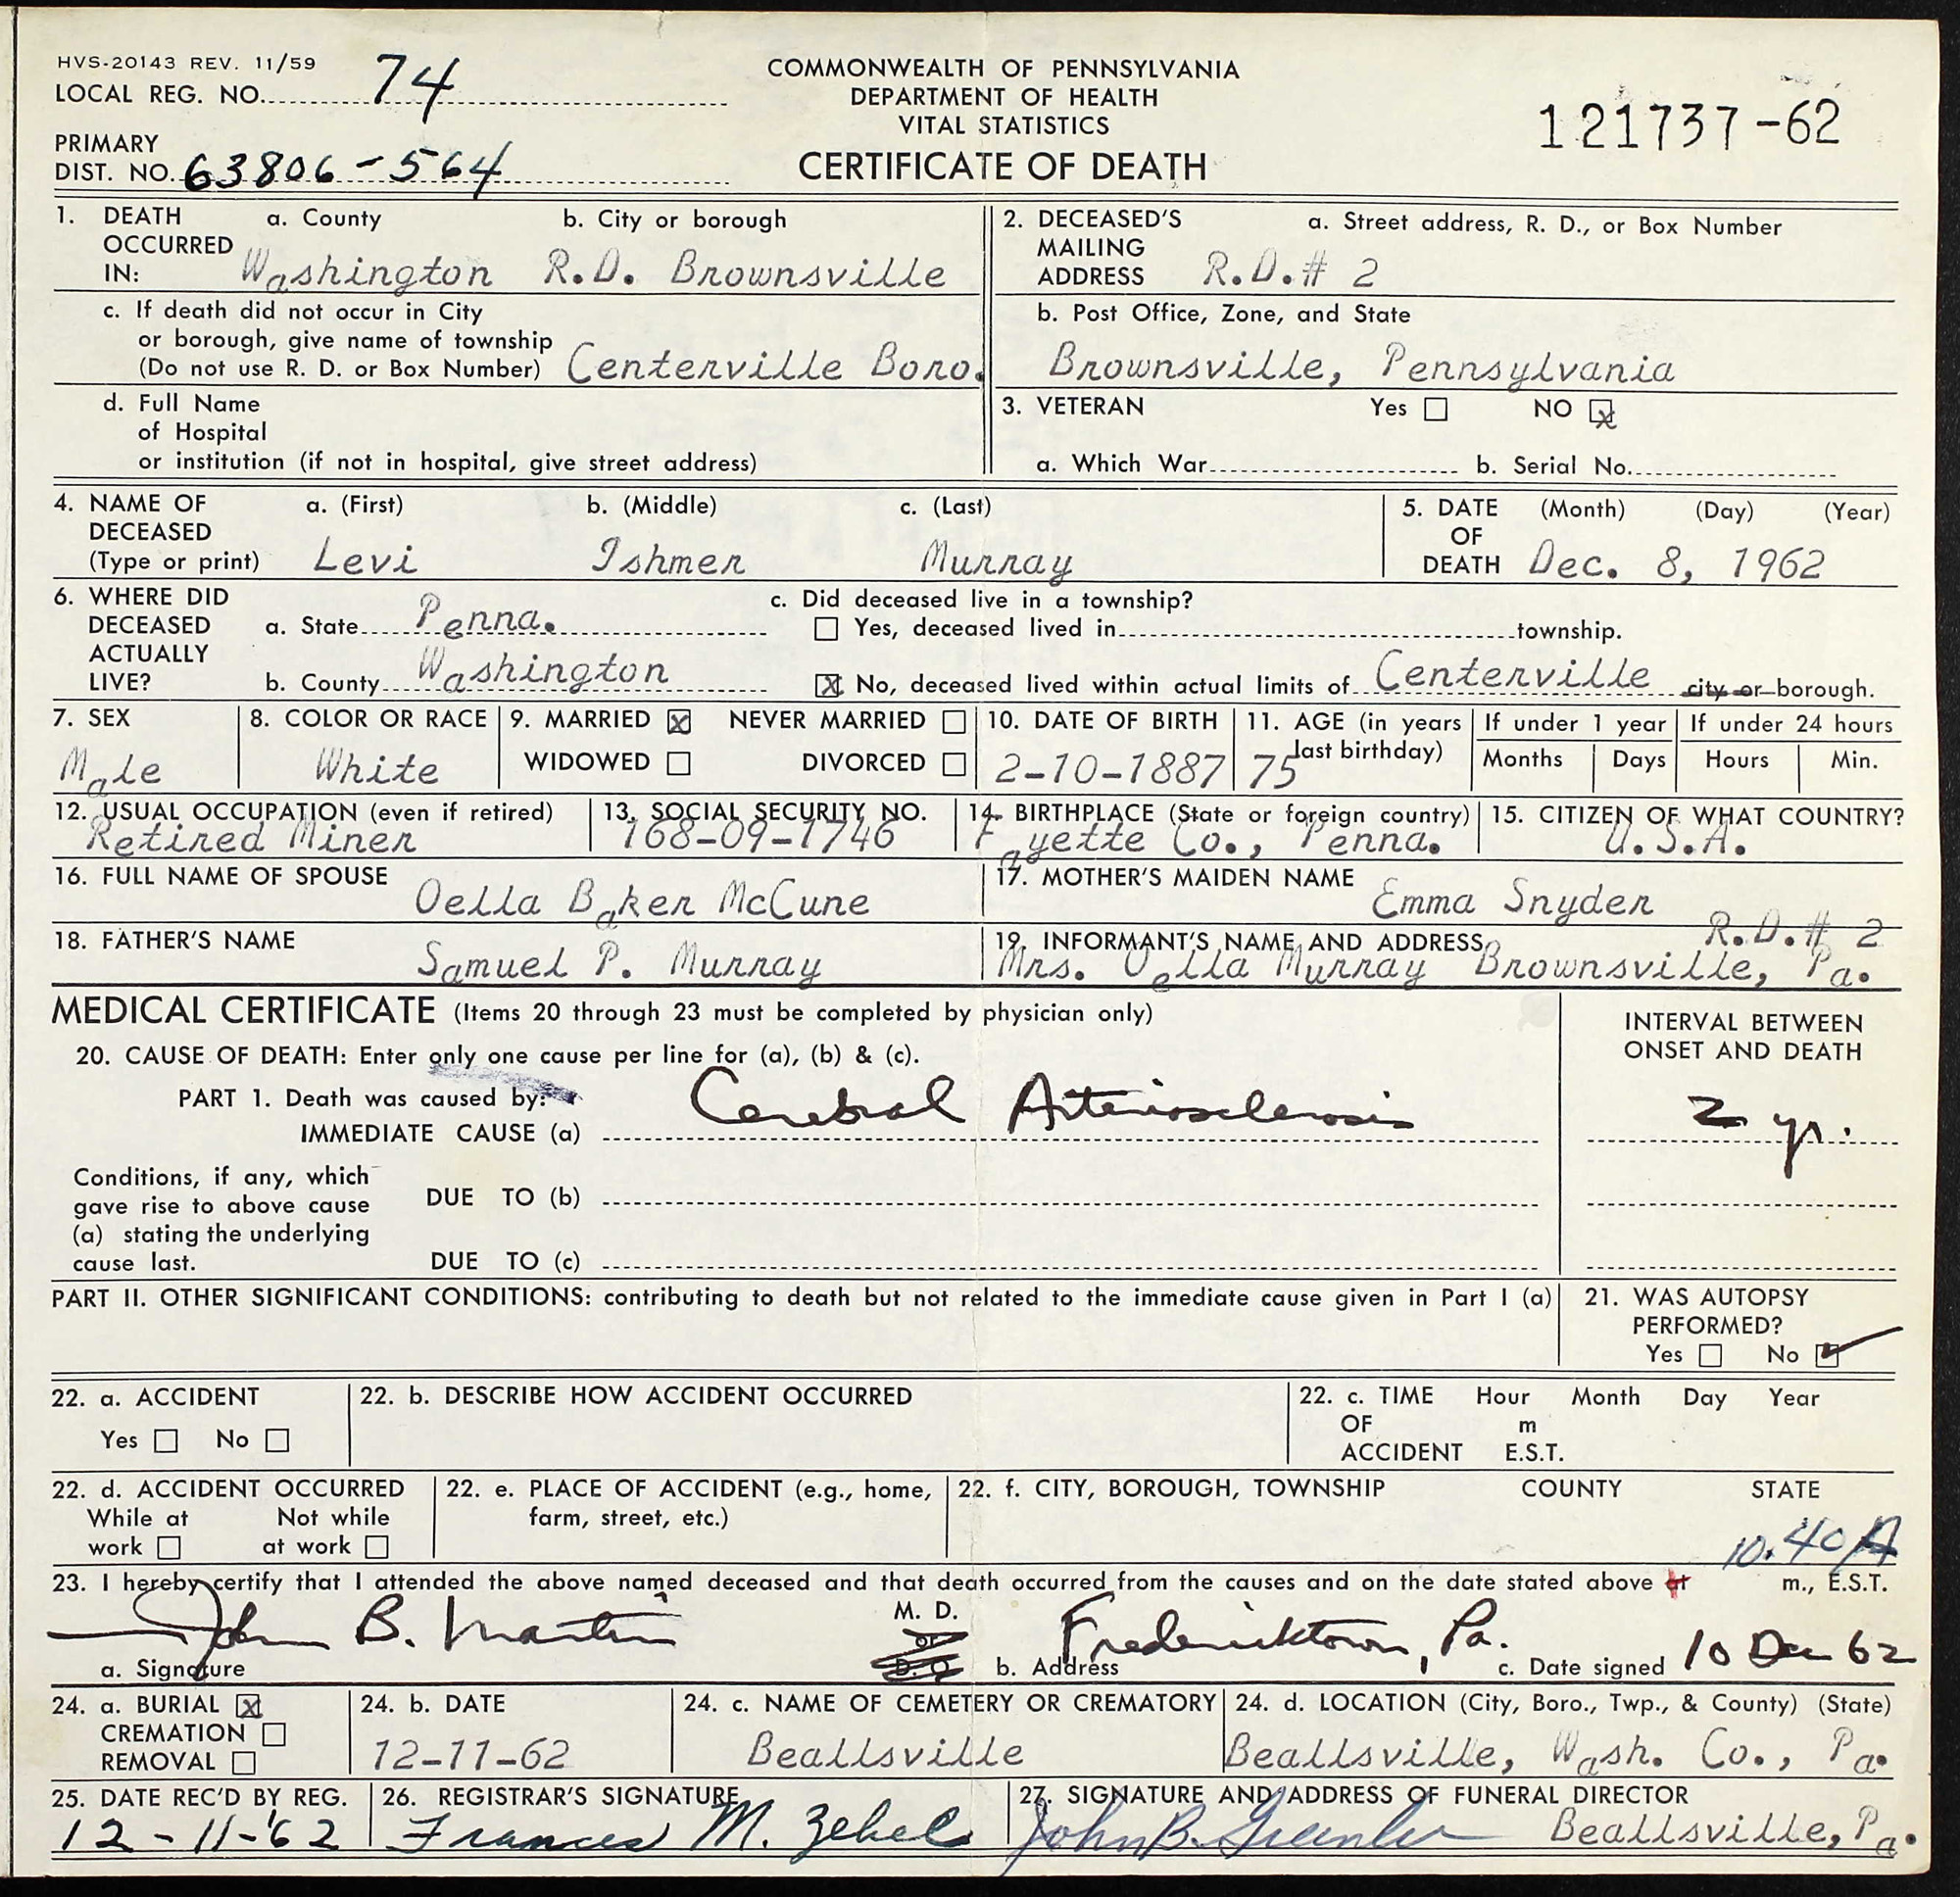 HVS-20143 REV. 11/59
LOCAL REG. NO. 74
PRIMARY
DIST. NO. 63806-564
COMMONWEALTH OF PENNSYLVANIA
DEPARTMENT OF HEALTH
VITAL STATISTICS
CERTIFICATE OF DEATH
121737-62
1. DEATH OCCURRED IN: a. County b. City or borough
Washington R.D. Brownsville
c. If death did not occur in City
or borough, give name of township
(Do not use R. D. or Box Number) Centerville Boro.
d. Full Name
of Hospital
or institution (if not in hospital, give street address)
2. DECEASED'S MAILING ADDRESS a. Street address, R. D., or Box Number
R.D.# 2
b. Post Office, Zone, and State
Brownsville, Pennsylvania
3. VETERAN Yes NO X
a. Which War b. Serial No.
4. NAME OF DECEASED (Type or print) a. (First) b. (Middle) c. (Last)
Levi Ishmer Murray
5. DATE OF DEATH (Month) (Day) (Year)
Dec. 8, 1962
6. WHERE DID DECEASED ACTUALLY LIVE?
a. State Penna.
b. County Washington
c. Did deceased live in a township?
Yes, deceased lived in township.
X No, deceased lived within actual limits of Centerville city or borough.
7. SEX
Male
8. COLOR OR RACE
White
9. MARRIED X NEVER MARRIED
WIDOWED DIVORCED
10. DATE OF BIRTH
2-10-1887
11. AGE (in years last birthday)
75
If under 1 year
Months Days
If under 24 hours
Hours Min.
12. USUAL OCCUPATION (even if retired)
Retired Miner
13. SOCIAL SECURITY NO.
168-09-1746
14. BIRTHPLACE (State or foreign country)
Fayette Co., Penna.
15. CITIZEN OF WHAT COUNTRY?
U.S.A.
16. FULL NAME OF SPOUSE
Oella Baker McCune
17. MOTHER'S MAIDEN NAME
Emma Snyder
18. FATHER'S NAME
Samuel P. Murray
19. INFORMANT'S NAME AND ADDRESS R.D.# 2
Mrs. Oella Murray Brownsville, Pa.
MEDICAL CERTIFICATE (Items 20 through 23 must be completed by physician only)
INTERVAL BETWEEN
ONSET AND DEATH
20. CAUSE OF DEATH: Enter only one cause per line for (a), (b) & (c).
PART 1. Death was caused by:
IMMEDIATE CAUSE (a) Cerebral Arteriosclerosis 2 yr.
Conditions, if any, which
gave rise to above cause
(a) stating the underlying
cause last.
DUE TO (b)
DUE TO (c)
PART II. OTHER SIGNIFICANT CONDITIONS: contributing to death but not related to the immediate cause given in Part I (a)
21. WAS AUTOPSY
PERFORMED?
Yes No ✓
22. a. ACCIDENT
Yes No
22. b. DESCRIBE HOW ACCIDENT OCCURRED
22. c. TIME OF ACCIDENT Hour Month Day Year
m
E.S.T.
22. d. ACCIDENT OCCURRED
While at work Not while at work
22. e. PLACE OF ACCIDENT (e.g., home,
farm, street, etc.)
22. f. CITY, BOROUGH, TOWNSHIP COUNTY STATE
10.40 A
23. I hereby certify that I attended the above named deceased and that death occurred from the causes and on the date stated above at m., E.S.T.
John B. Martin M. D. or D. O. Fredericktown, Pa. 10 Dec 62
a. Signature b. Address c. Date signed
24. a. BURIAL X
CREMATION
REMOVAL
24. b. DATE
12-11-62
24. c. NAME OF CEMETERY OR CREMATORY
Beallsville
24. d. LOCATION (City, Boro., Twp., & County) (State)
Beallsville, Wash. Co., Pa.
25. DATE REC'D BY REG.
12-11-'62
26. REGISTRAR'S SIGNATURE
Frances M. Zebel
27. SIGNATURE AND ADDRESS OF FUNERAL DIRECTOR
John B. Greenlee Beallsville, Pa.